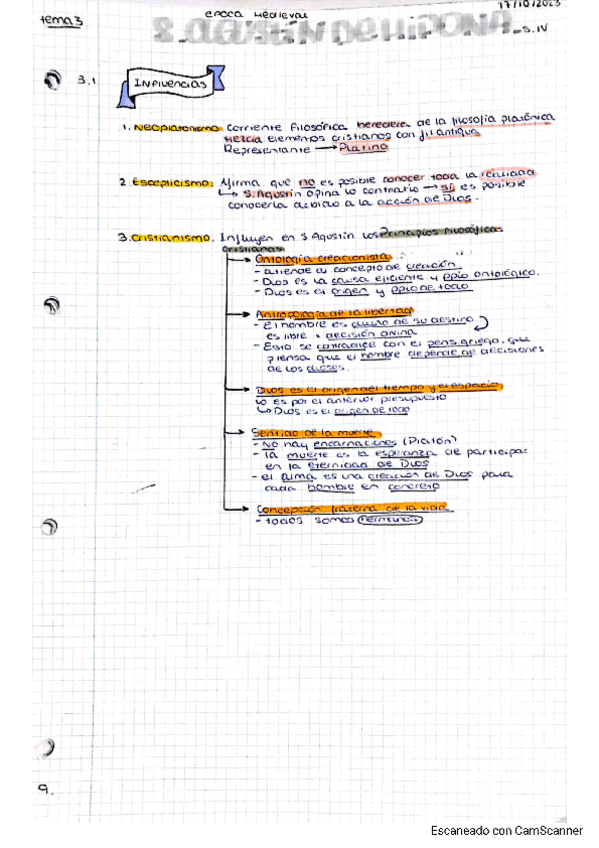 tema 3
EPOCA MEDIEVAL
17/10/2023
S. IV
3.1 INFLUENCIAS
1. Neoplatonismo: Corriente filosófica heredera de la filosofía platónica
mezcla elementos cristianos con fil antigua
Representante → Plotino
2 Escepticismo: Afirma que no es posible conocer toda la realidad
↳ S. Agustín opina lo contrario → sí es posible
conocerla debido a la acción de Dios.
3. Cristianismo. Influyen en S Agustín los principios filosóficos
cristianos
→ Ontología creacionista:
- atiende al concepto de creación.
- Dios es la causa eficiente y ppio ontológico.
- Dios es el origen y ppio de todo
→ Antropología de la libertad
- El hombre es dueño de su destino
es libre x decisión divina
- Esto se contradice con el pens. griego, que
piensa que el hombre depende de decisiones
de los dioses.
→ Dios es el origen del tiempo y el espacio
lo es por el anterior presupuesto
↳ Dios es el origen de todo
→ Sentido de la muerte
- No hay encarnaciones (Platón)
- la muerte es la esperanza de participar
en la eternidad de Dios
- el alma es una creación de Dios para
cada hombre en concreto
→ Concepción fraterna de la vida
- todos somos hermanos
9.
Escaneado con CamScanner